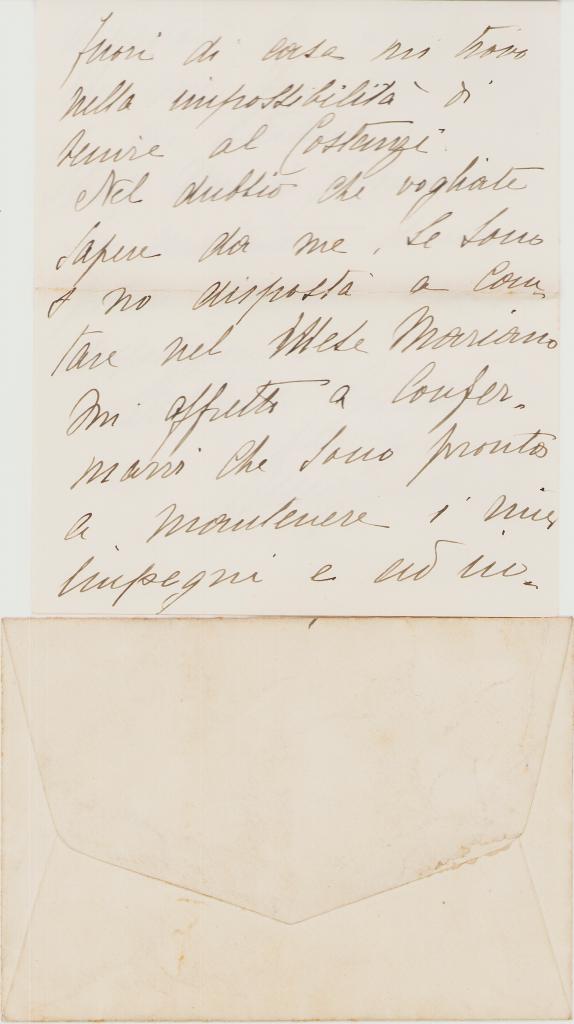 fuori di casa mi trovo
nella impossibilità di
venire al Costanzi.
Nel dubbio che vogliate
sapere da me, se sono
o no disposta a Can-
tare nel Mese Mariano
mi affretto a Confer-
marvi che sono pronta
a mantenere i miei
impegni e ad in-